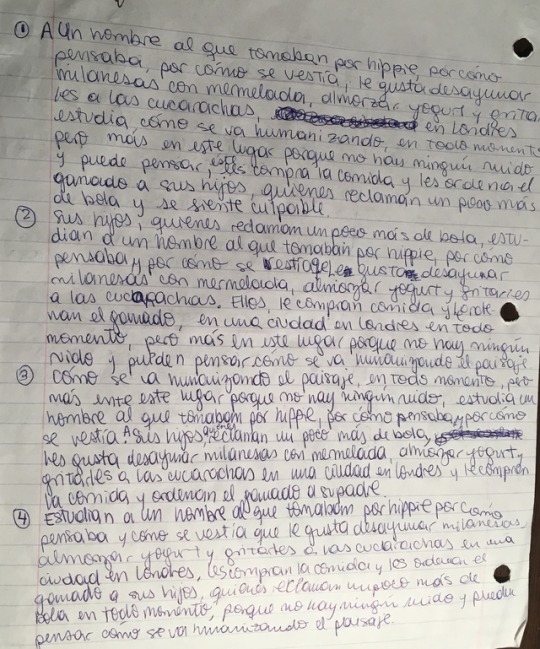 ① A Un hombre al que tomaban por hippie, por cómo
pensaba, por cómo se vestía, le gusta desayunar
milanesas con memelada, almorzar yogurt y gritar
les a las cucarachas, en Londres
estudia cómo se va humanizando, en todo momento
pero más en este lugar porque no hay ningún ruido
y puede pensar, este les compra la comida y les ordena el
ganado a sus hijos, quienes reclaman un poco más
de bola y se siente culpable.
② Sus hijos, quienes reclaman un poco más de bola, estu-
dian a un hombre al que tomaban por hippie, por cómo
pensaba y por cómo se vestía, le gusta desayunar
milanesas con mermelada, almorzar yogurt y gritarles
a las cucarachas. Ellos, le compran comida y le orde-
nan el ganado, en una ciudad en Londres en todo
momento, pero más en este lugar porque no hay ningún
ruido y pueden pensar cómo se va humanizando el paisaje
③ Cómo se va humanizando el paisaje, en todo momento, pero
más ente este lugar porque no hay ningún ruido, estudia un
hombre al que tomabam por hippie, por cómo pensaba, y por cómo
se vestía. A sus hijos quienes reclaman un poco más de bola,
les gusta desayunar milanesas con memelada, almorzar yogurt y
gritarles a las cucarachas en una ciudad en Londres y le compran
la comida y ordenam el gamado a su padre.
④ Estudian a un hombre al que tomabam por hippie por cómo
pensaba y como se vestía que le gusta desayunar milanesas,
almorzar yogurt y gritarles a las cucarachas en una
ciudad en Londres, les compran la comida y les ordenan el
gamado a sus hijos, quienes reclaman un poco más de
bola en todo momento, porque no hay ningún ruido y pueden
pensar cómo se va humanizando el paisaje.